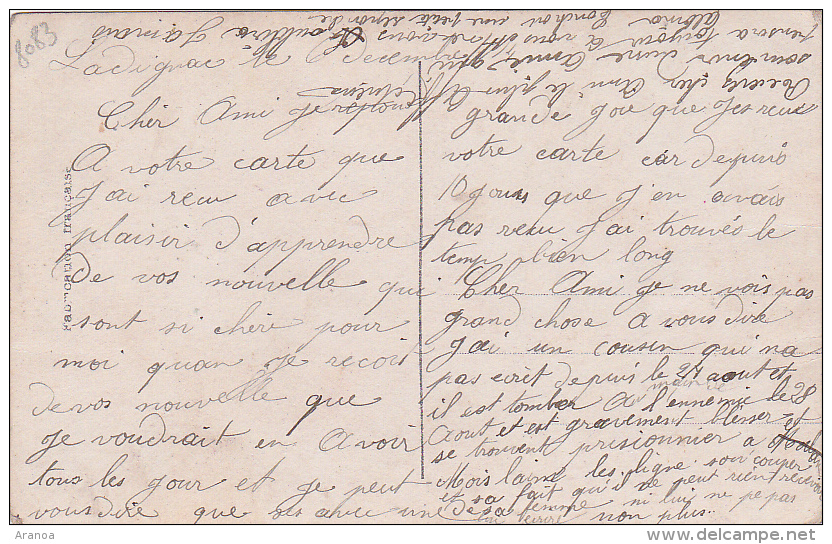 8083
Ladignac le 6 decembre
Cher Ami Je reponds
A votre carte que
J'ai recu avec
plaisir d'apprendre
De vos nouvelle qui
sont si chère pour
moi quan Je recoit
de vos nouvelle que
Je voudrait en Avoir
tous les jour et Je peut
vous dire que ses avec une
grande Joie que J'es recu
votre carte car depuis
10 Jours que J'en avais
pas recu J'ai trouvés le
temp bien long
Cher Ami Je ne vois pas
grand chose A vous dire
J'ai un cousin qui na
pas ecrit depuis le 27 aout et
il est tomber A l'ennemie le 28
Aout et est gravement blesser et
se trouvent prisionnier a
Mois laine les ligne son couper
et sa fait qu'il ne peut rien recevoir
de sa femme ni lui ne pe pas
lui ecrire non plus..
Recevez cher Ami le plus
souvenir d'une Amie qui
pensera toujour A vous
Albonia Conchon une petite reponse
oublira Jamais
Fabrication française
http://www.delcampe.net
Aranoa